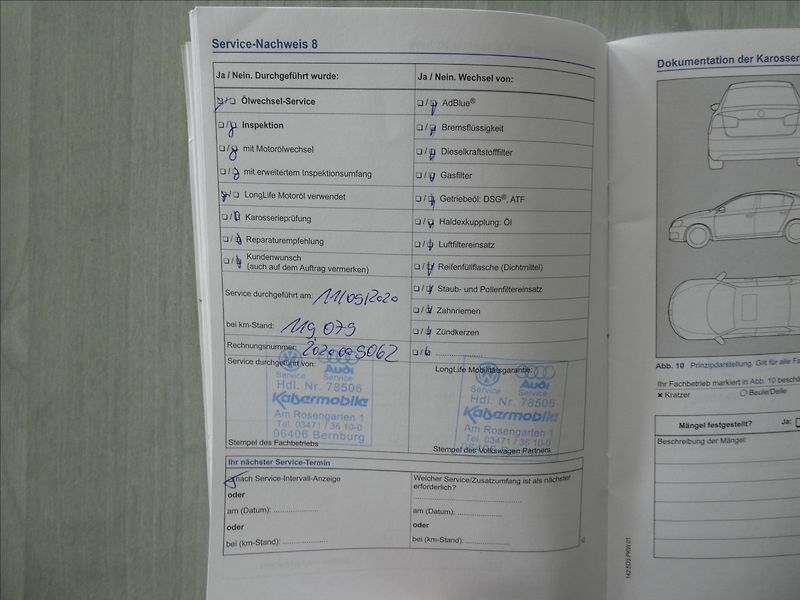 Service-Nachweis 8
Ja / Nein. Durchgeführt wurde:
Ölwechsel-Service
Inspektion
mit Motorölwechsel
mit erweitertem Inspektionsumfang
LongLife Motoröl verwendet
Karosserieprüfung
Reparaturempfehlung
Kundenwunsch
(auch auf dem Auftrag vermerken)
Service durchgeführt am: 11/09/2020
bei km-Stand: 119 079
Rechnungsnummer: 2020009062
Service durchgeführt von:
Audi
Service Service
Hdl. Nr. 78506
Kabermobile
Am Rosengarten 1
Tel. 03471 / 36 10-0
06406 Bernburg
Stempel des Fachbetriebs
Ja / Nein. Wechsel von:
AdBlue®
Bremsflüssigkeit
Dieselkraftstofffilter
Gasfilter
Getriebeöl: DSG®, ATF
Haldexkupplung: Öl
Luftfiltereinsatz
Reifenfüllflasche (Dichtmittel)
Staub- und Pollenfiltereinsatz
Zahnriemen
Zündkerzen
LongLife Mobilitätsgarantie:
Audi
Service Service
Hdl. Nr. 78506
Kabermobile
Am Rosengarten 1
Tel. 03471 / 36 10-0
Stempel des Volkswagen Partners
Ihr nächster Service-Termin
nach Service-Intervall-Anzeige
oder
am (Datum):
oder
bei (km-Stand):
Welcher Service/Zusatzumfang ist als nächster
erforderlich?
am (Datum):
oder
bei (km-Stand):
Dokumentation der Karosser
Abb. 10 Prinzipdarstellung. Gilt für alle Fa
Ihr Fachbetrieb markiert in Abb. 10 beschä
Kratzer
Beule/Delle
Mängel festgestellt? Ja:
Beschreibung der Mängel: